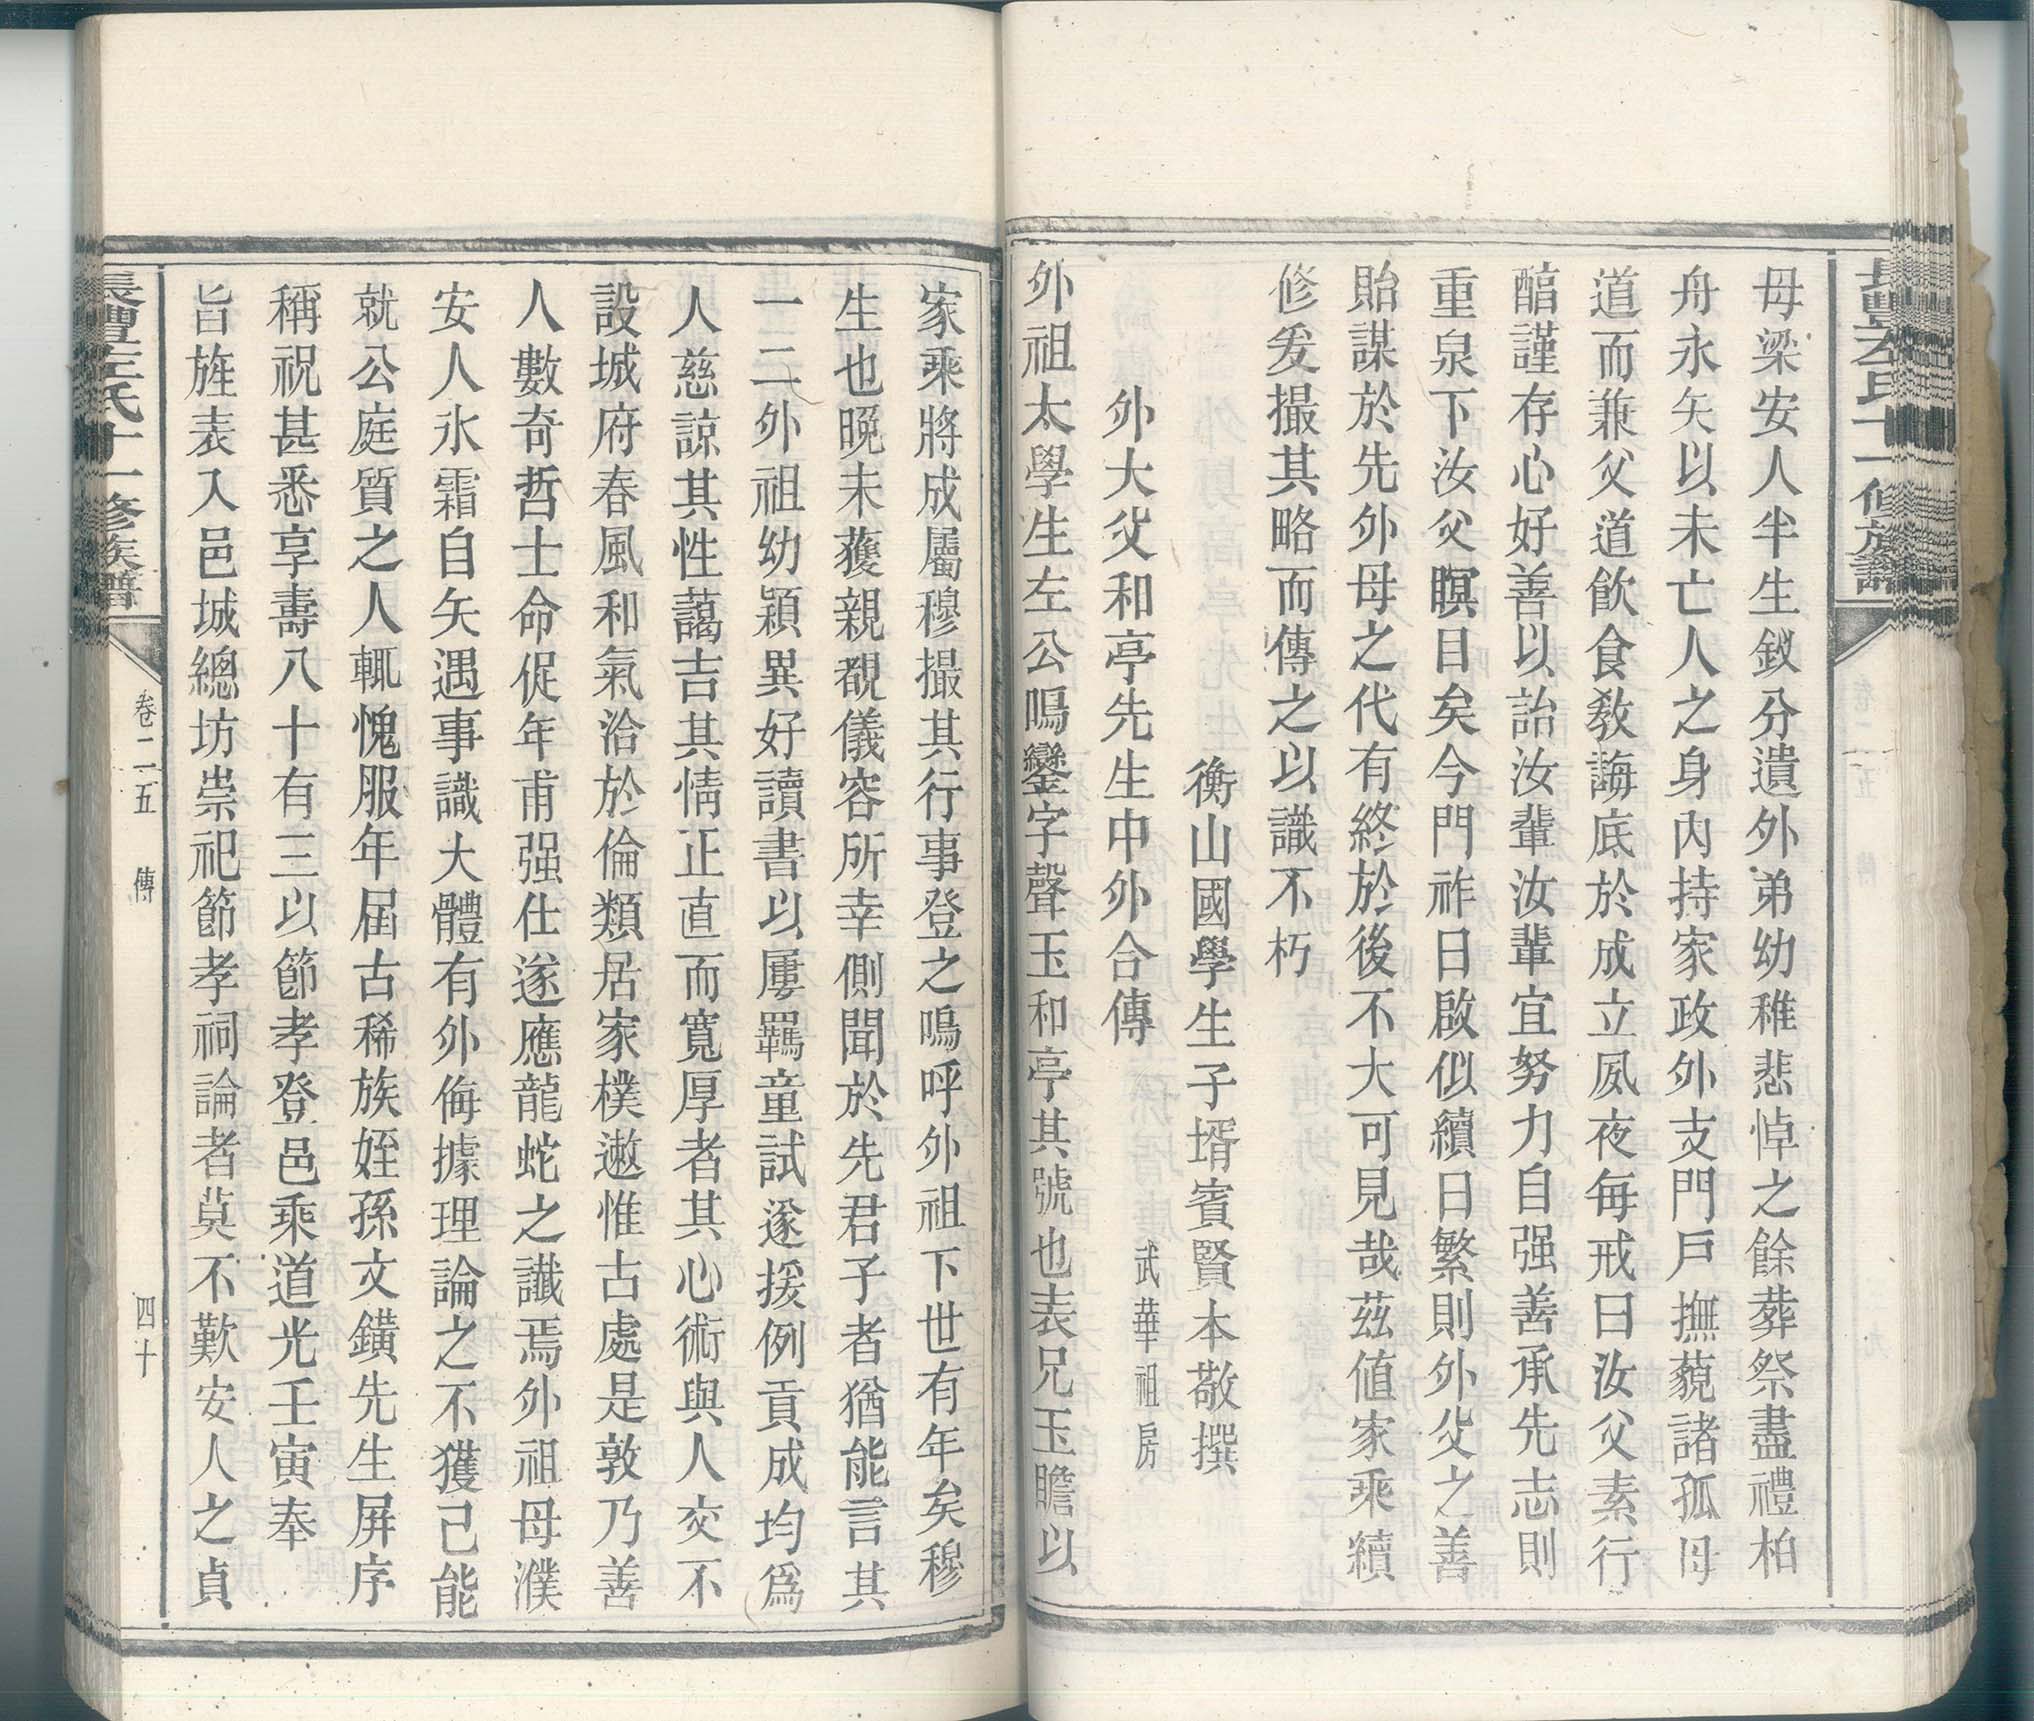 母梁安人半生釵分遺外弟幼稚悲悼之餘葬祭盡禮柏
舟永矢以未亡人之身內持家政外支門戶撫藐諸孤毋
道而兼父道飲食敎誨底於成立夙夜每戒曰汝父素行
醕謹存心好善以詒汝輩汝輩宜努力自强善承先志則
重泉下汝父瞑目矣今門祚日啟似續日繁則外父之善
貽謀於先外母之代有終於後不大可見哉茲值家乘續
修爰撮其略而傳之以識不朽
衡山國學生子壻賓賢本敬撰
外大父和亭先生中外合傳　武華祖房
外祖太學生左公鳴鑾字聲玉和亭其號也表兄玉瞻以
家乘將成屬穆撮其行事登之嗚呼外祖下世有年矣穆
生也晚未獲親覩儀容所幸側聞於先君子者猶能言其
一二外祖幼穎異好讀書以屢羈童試遂援例貢成均爲
人慈諒其性藹吉其情正直而寬厚者其心術與人交不
設城府春風和氣洽於倫類居家樸遬惟古處是敦乃善
人數奇哲士命促年甫强仕遂應龍蛇之讖焉外祖母濮
安人氷霜自矢遇事識大體有外侮據理論之不獲己能
就公庭質之人輒愧服年屆古稀族姪孫文鐄先生屏序
稱祝甚悉享壽八十有三以節孝登邑乘道光壬寅奉
旨旌表入邑城總坊崇祀節孝祠論者莫不歎安人之貞
長豐左氏十一修族譜
卷二五　傳　四十